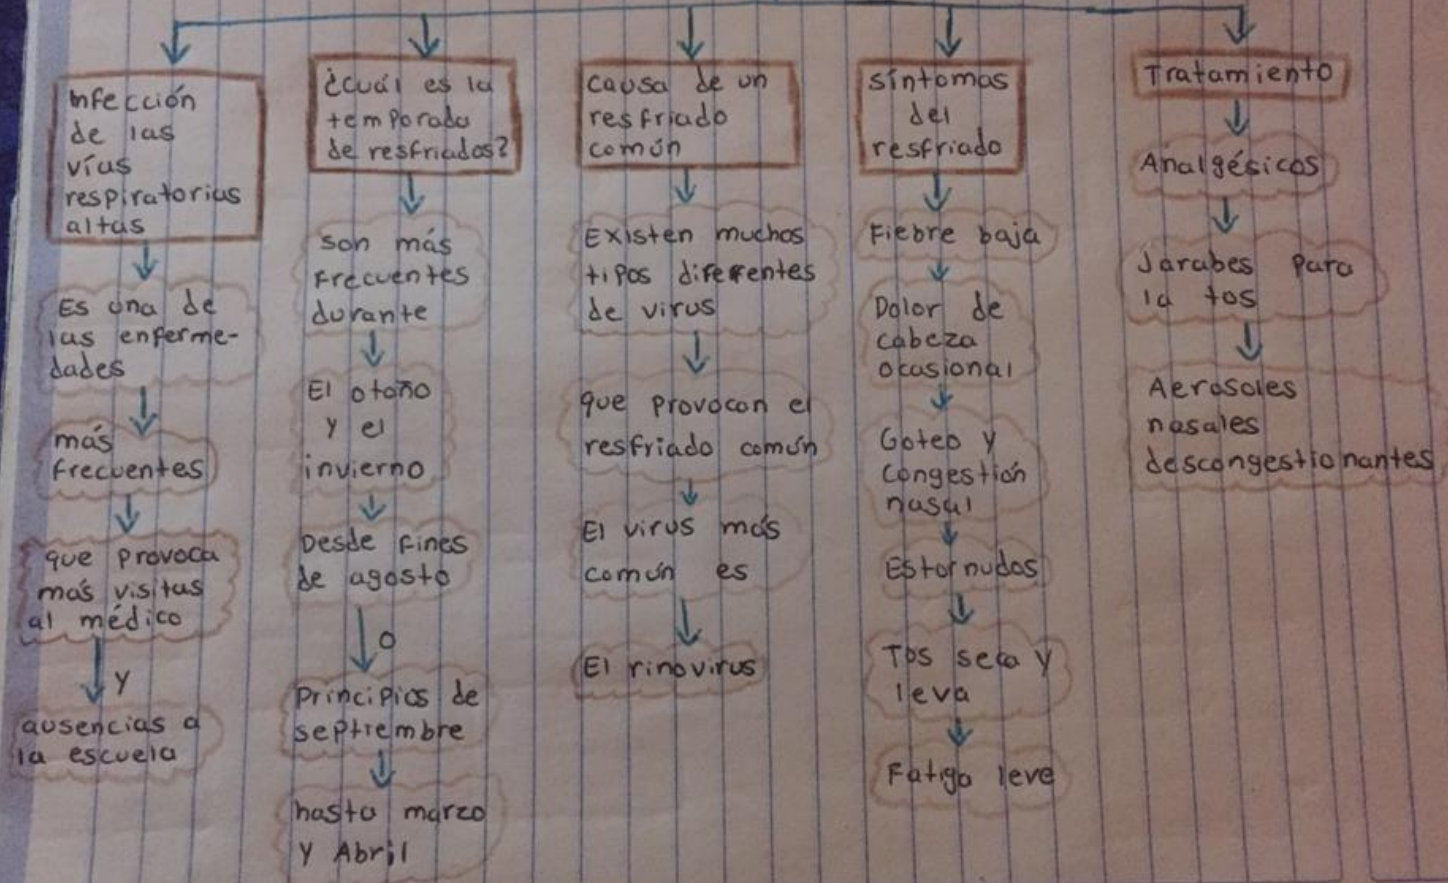 Infección
de las
vías
respiratorias
altas
Es una de
las enferme-
dades
más
frecuentes
que provoca
más visitas
al médico
y
ausencias a
la escuela
¿cuál es la
temporada
de resfriados?
son más
frecuentes
durante
El otoño
y el
invierno
Desde fines
de agosto
o
principios de
septiembre
hasta marzo
y Abril
causa de un
resfriado
común
Existen muchos
tipos diferentes
de virus
que provocan el
resfriado común
El virus más
común es
El rinovirus
síntomas
del
resfriado
Fiebre baja
Dolor de
cabeza
ocasional
Goteo y
congestión
nasal
Estornudos
Tos seca y
leva
Fatiga leve
Tratamiento
Analgésicos
Jarabes para
la tos
Aerosoles
nasales
descongestionantes